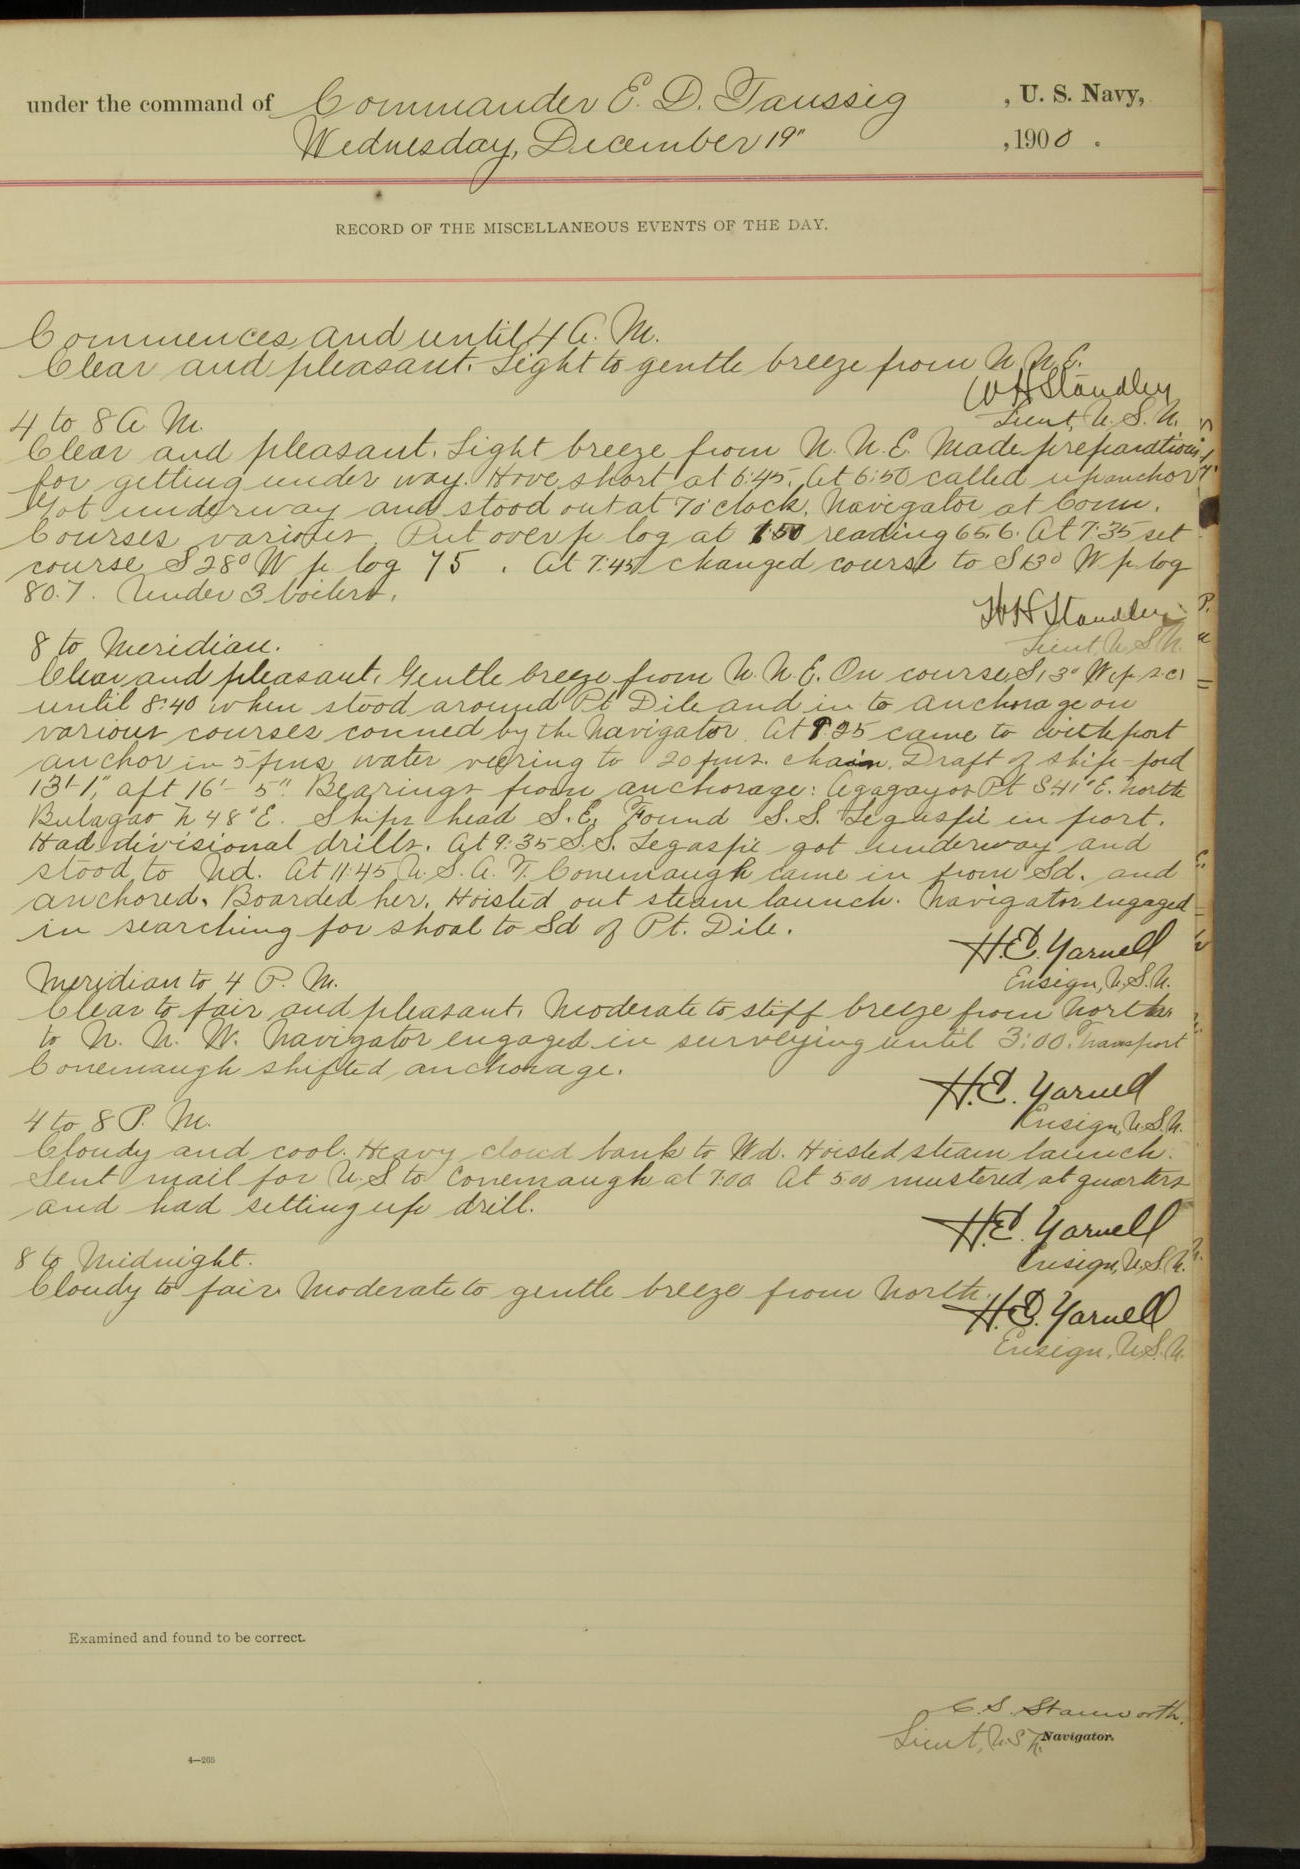 under the command of Commander E. D. Taussig, U. S. Navy,
Wednesday, December 19", 1900.
RECORD OF THE MISCELLANEOUS EVENTS OF THE DAY.
Commences and until 4 A. M.
Clear and pleasant. Light to gentle breeze from N. N. E.
W H Standley
Lieut, U. S. N.
4 to 8 A. M.
Clear and pleasant. Light breeze from N. N. E. Made preparations
for getting under way. Hove short at 6:45. At 6:50 called up anchor
Got underway and stood out at 7 o'clock, Navigator at Conn.
Courses various. Put over p log at 7:50 reading 65.6. At 7:35 set
course S 28° W p log 75. At 7:45 changed course to S 13° W p log
80.7. Under 3 boilers.
W H Standley
Lieut, U. S. N.
8 to Meridian.
Clear and pleasant. Gentle breeze from N. N. E. On course S 13° W p s c
until 8:40 when stood around Pt Dile and in to anchorage on
various courses conned by the Navigator. At 9 25 came to with port
anchor in 5 fms water veering to 20 fms. chain. Draft of ship - ford
13'-1", aft 16'-5". Bearings from anchorage: Agagayos Pt S 41° E. North
Bulagao N 48° E. Ships head S. E. Found S. S. Legaspie in port.
Had divisional drills. At 9:35 S. S. Legaspie got underway and
stood to Nd. At 11:45 U. S. A. T. Conemaugh came in from Sd. and
anchored. Boarded her. Hoisted out steam launch. Navigator engaged
in searching for shoal to Sd of Pt. Dile.
H. E. Yarnell
Ensign, U. S. N.
Meridian to 4 P. M.
Clear to fair and pleasant. Moderate to stiff breeze from North
to N. N. W. Navigator engaged in surveying until 3:00. Transport
Conemaugh shifted anchorage.
H. E. Yarnell
Ensign, U. S. N.
4 to 8 P. M.
Cloudy and cool. Heavy cloud bank to Wd. Hoisted steam launch.
Sent mail for U. S to Conemaugh at 7:00 At 5:00 mustered at quarters
and had setting up drill.
H. E. Yarnell
Ensign, U. S. N.
8 to Midnight.
Cloudy to fair. Moderate to gentle breeze from North.
H. E. Yarnell
Ensign, U. S. N.
Examined and found to be correct.
C. S. Stanworth.
Lieut, U. S. N. Navigator.
4—265